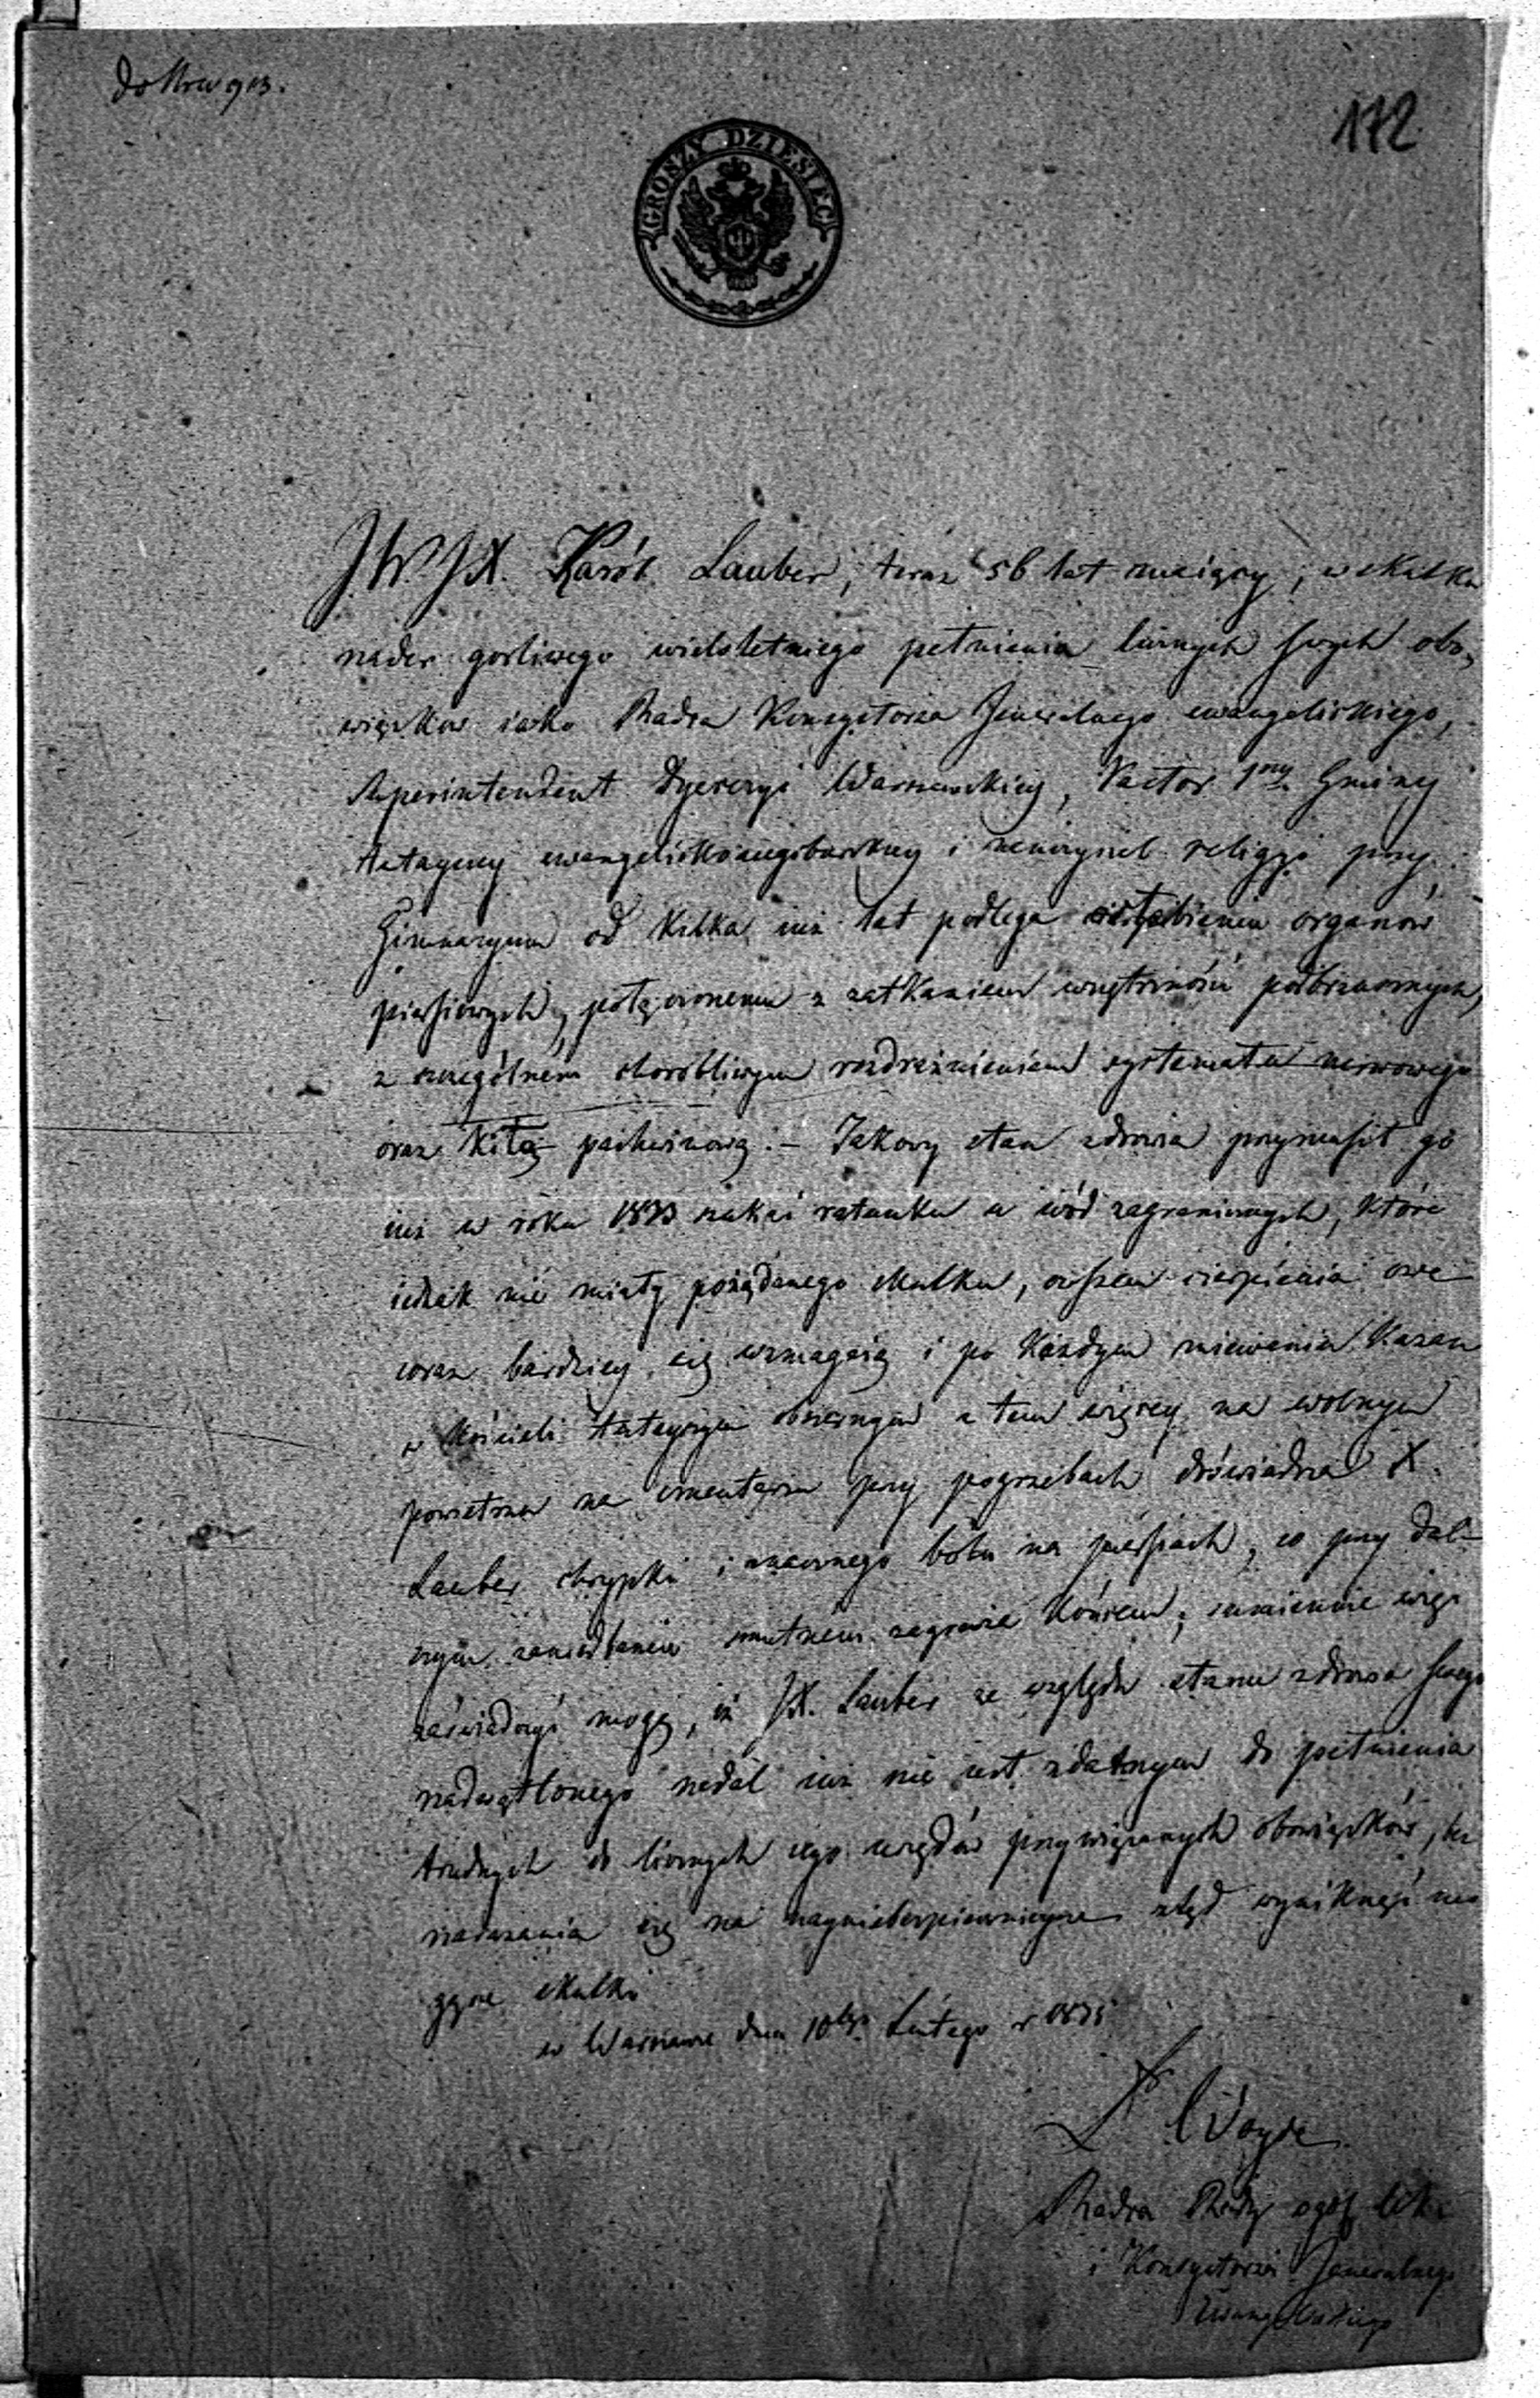 do Nru 913.
172
GROSZY DZIESIĘĆ
J.W. JX. Karól Lauber, teraz 56 lat maiący, w skutku
nader gorliwego wieloletniego pełnienia licznych swych obo-
wiązków iako Radca Konsystorza Jeneralnego ewangelickiego,
Superintendent Dyecezyi Warszawskiey, Pastor Gminy
tutayszey ewangelicko augsburskiey i nauczyciel religji przy
Gimnazyum od kilku iuż lat podlega osłabieniu organów
piersiowych, połączonemu z zatkaniem wnętrzności podbrzusznych,
z szczególném chorobliwym rozdrażnieniem systematu nerwowego
oraz kiłą pachwinową. – Takowy stan zdrowia przymusił go
iuż w roku 1833 szukać ratunku u wód zagranicznych, które
iednak nie miały pożądanego skutku, owszem cierpienia owe
coraz bardziey się wzmagaią i po każdym miewaniu kazań
w kościele tutayszym obszernym a tem więcey na wolnym
powietrzu na cmentarzu przy pogrzebach doświadcza X.
Lauber chrypki i znacznego bólu na piersiach, co przy dal-
szym zaniedbaniu smutnem zagraża końcem; sumiennie więc
zaświadczyć mogę, iż JX. Lauber ze względu stanu zdrowia swego
nadwątlonego nadal iuż nie iest zdatnym do pełnienia
trudnych do licznych iego urzędów przywiązanych obowiązków, bez
narażania się na nayniebezpiecznieysze ztąd wyniknąć mo
gące skutki
w Warszawie dnia 10tego Lutego r 1835
Dr Woyde
Radca Rady ogól lek:
i Konsystorza Jeneralnego
Ewangelickiego